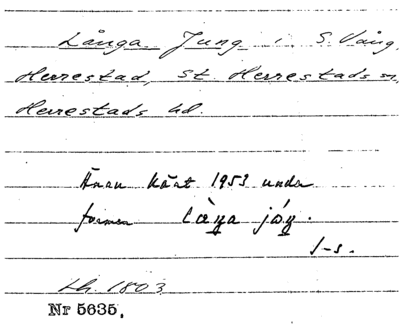 Långa Jung i S. Vång,
Herrestad, St. Herrestads sn,
Herrestads hd.
Ännu känt 1953 under
formen là̱ŋa jóŋ.
J-s.
Lh. 1803
Nr 5635.